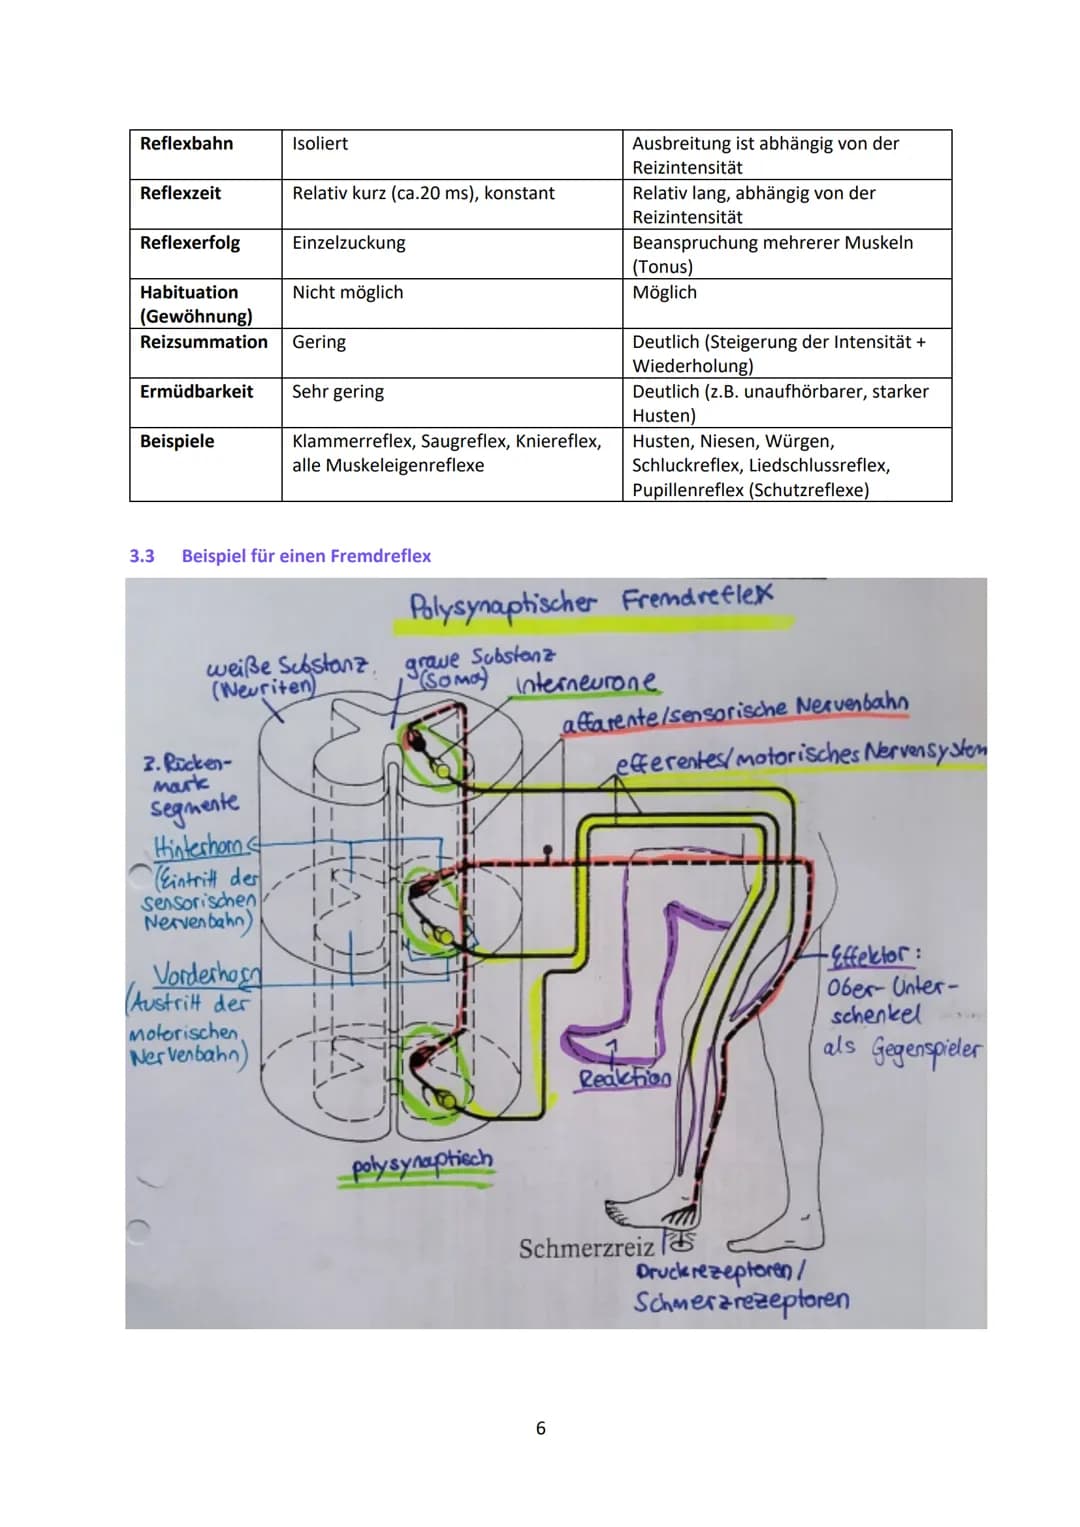 Reflexbahn
Isoliert
Ausbreitung ist abhängig von der
Reizintensität
Reflexzeit
Relativ kurz (ca.20 ms), konstant
Relativ lang, abhängig von der
Reizintensität
Reflexerfolg
Einzelzuckung
Beanspruchung mehrerer Muskeln
(Tonus)
Habituation
(Gewöhnung)
Nicht möglich
Möglich
Reizsummation
Gering
Deutlich (Steigerung der Intensität +
Wiederholung)
Ermüdbarkeit
Sehr gering
Deutlich (z.B. unaufhörbarer, starker
Husten)
Beispiele
Klammerreflex, Saugreflex, Kniereflex,
alle Muskeleigenreflexe
Husten, Niesen, Würgen,
Schluckreflex, Liedschlussreflex,
Pupillenreflex (Schutzreflexe)
3.3 Beispiel für einen Fremdreflex
Polysynaptischer Fremdreflex
weiße Substanz
(Neuriten)
graue Substanz
(Soma)
Interneurone
affarente/sensorische Nervenbahn
efferentes/motorisches Nervensystem
3. Rücken-
mark
Segmente
Hinterhorn
(Eintritt der
sensorischen
Nervenbahn)
Vorderhorn
(Austritt der
motorischen
Nervenbahn)
Effektor:
Ober- Unter-
schenkel
als Gegenspieler
Reaktion
polysynaptisch
Schmerzreiz
Druckrezeptoren/
Schmerzrezeptoren
6